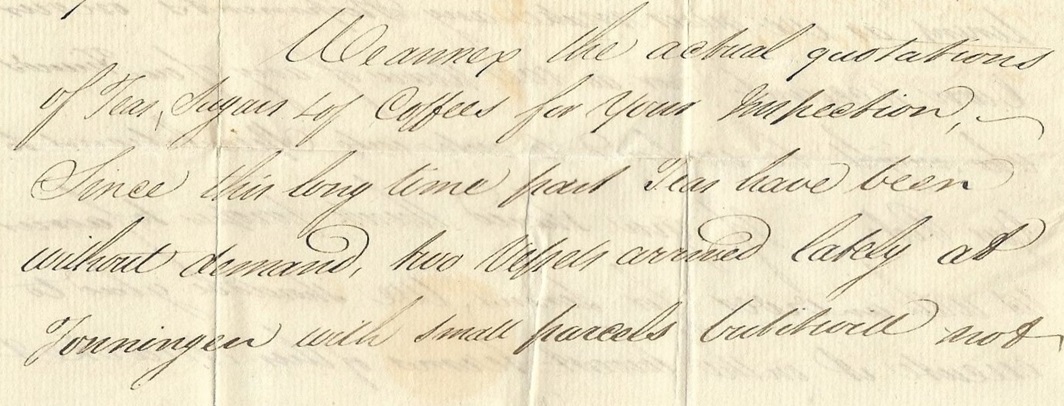 We annex the actual quotations
of Teas, Sugars & of Coffees for Your Inspection,
Since this long time past Teas have been
without demand, two Vessels arrived lately at
Tonningen with small parcels but it will not